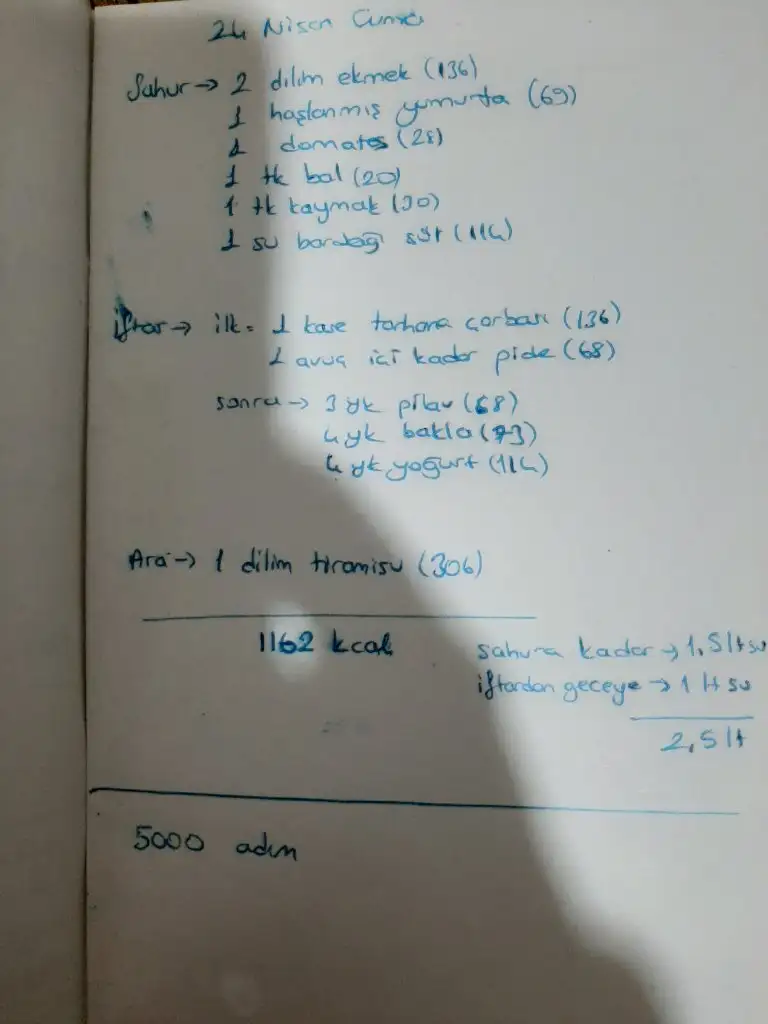 24 Nisan Cuma
Sahur → 2 dilim ekmek (136)
1 haşlanmış yumurta (69)
1 domates (28)
1 tk bal (20)
1 tk kaymak (30)
1 su bardağı süt (114)
iftar → ilk = 1 kase tarhana çorbası (136)
1 avuç içi kadar pide (68)
sonra → 3 yk pilav (68)
4 yk bakla (73)
4 yk yoğurt (114)
Ara → 1 dilim tiramisu (306)
1162 kcal
sahura kadar → 1,5 lt su
iftardan geceye → 1 lt su
2,5 lt
5000 adım